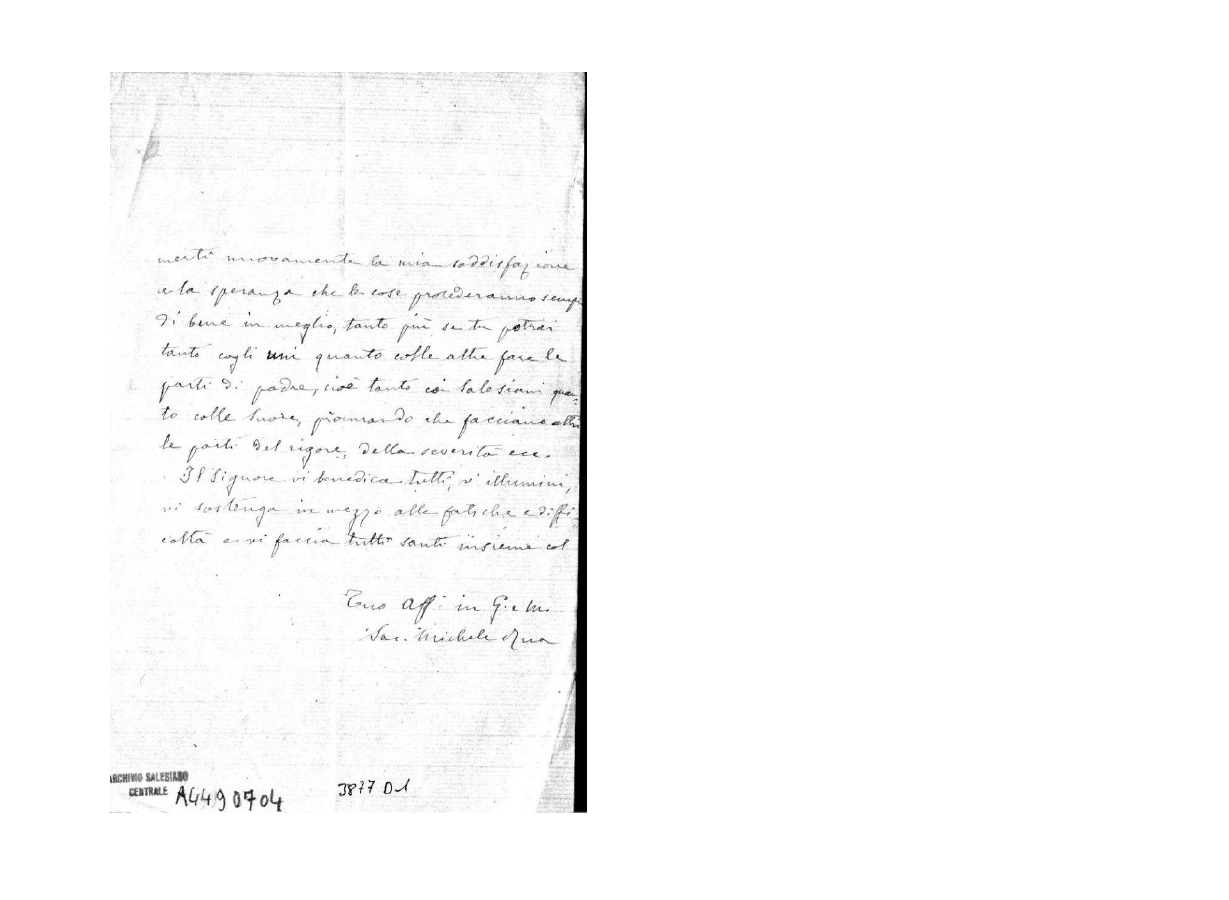 nuovamente la mia soddisfazione
e la speranza che le cose procederanno sempre
di bene in meglio, tanto più se tu potrai
tanto cogli uni quanto colle altre fare le
parti di padre, cioè tanto coi Salesiani quan-
to colle Suore, procurando che facciano altri
le parti del rigore, della severità ecc.
Il Signore vi benedica tutti, v' illumini,
vi sostenga in mezzo alle fatiche e diffi-
coltà e vi faccia tutti santi insieme col
Tuo Aff. in G. e M.
Sac. Michele Rua
ARCHIVIO SALESIANO
CENTRALE A4490704
3877 D1